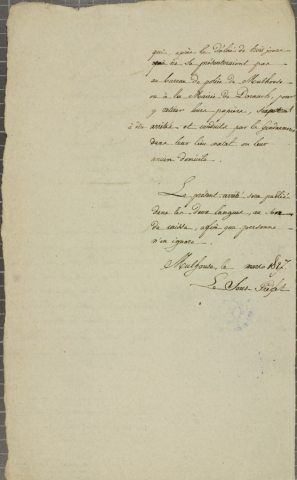 qui, après le délai de trois jours
ne se présenteraient pas
au bureau de police de Mulhouse
ou à la Mairie de Dornach, pour
y retirer leurs papiers, seront
arrêtés et conduits par la Gendarmerie
dans leur lieu natal ou leur
ancien domicile.
Le présent arrêté sera publié
dans les deux langues, au son
de caisse, afin que personne
n'en ignore.
Mulhouse, le mars 1827
Le Sous-Préfet